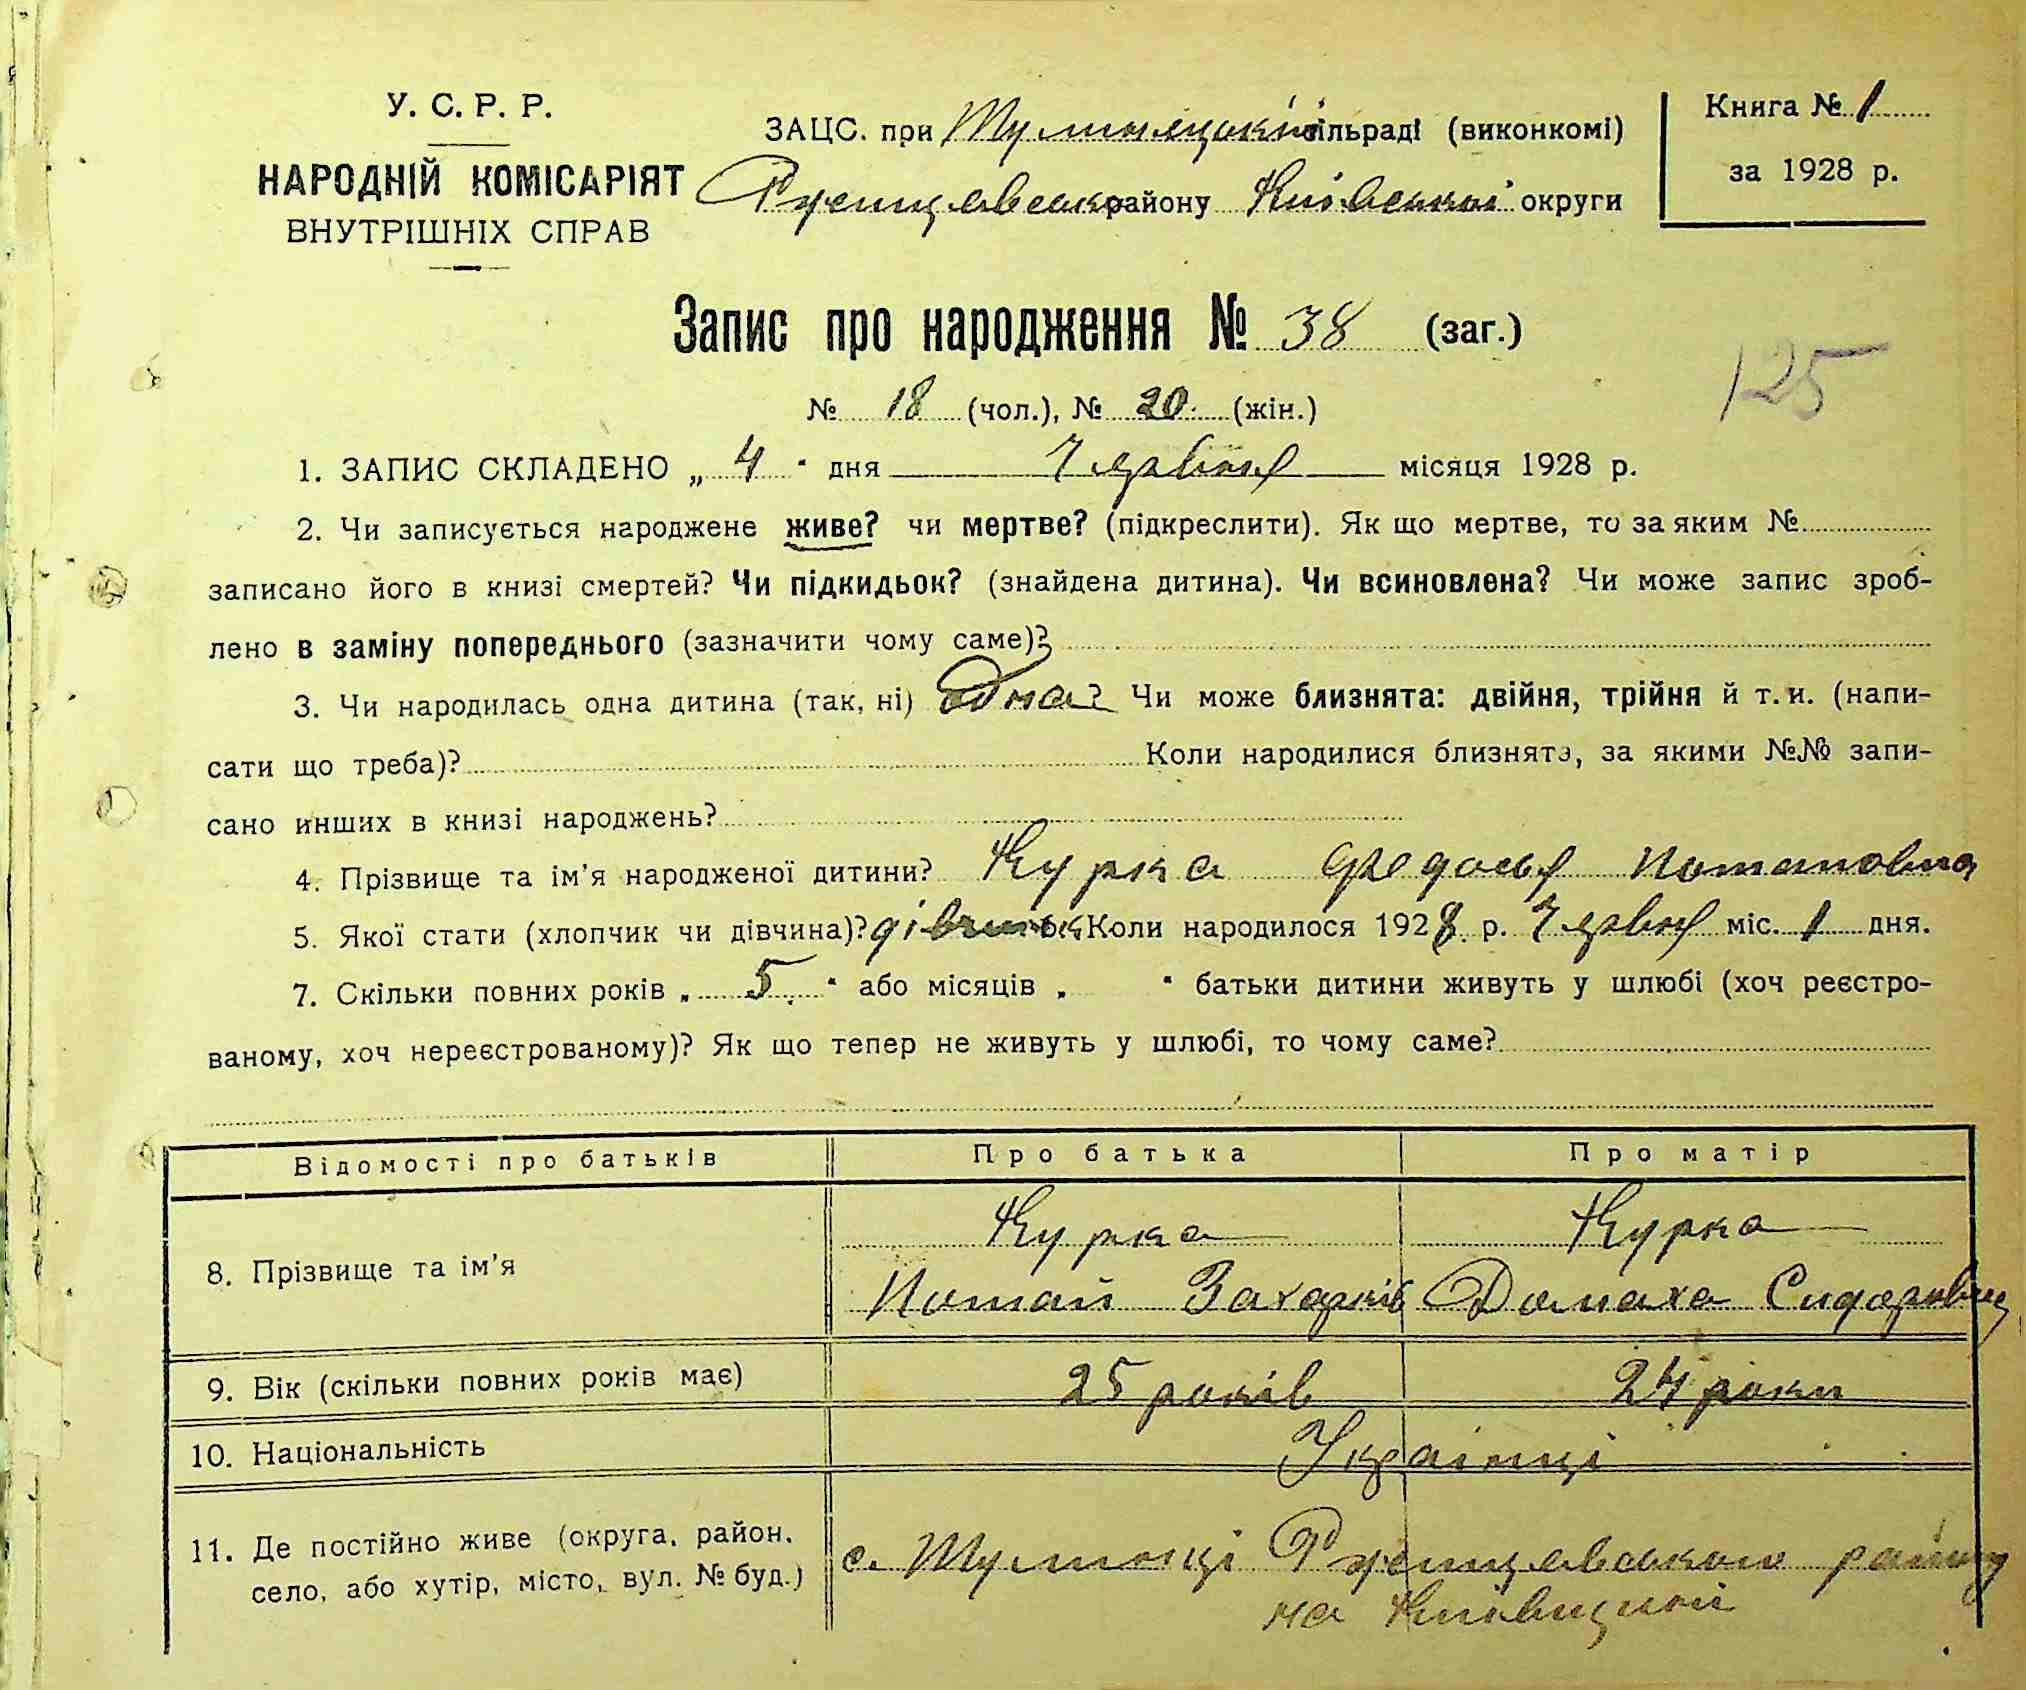 У. С. Р. Р.
НАРОДНІЙ КОМІСАРІЯТ
ВНУТРІШНІХ СПРАВ
ЗАЦС. при сільраді (виконкомі)
району Київської округи
Книга № 1
за 1928 р.
Запис про народження № 38 (заг.)
125
№ 18 (чол.), № 20. (жін.)
1. ЗАПИС СКЛАДЕНО „ 4 " дня Червня місяця 1928 р.
2. Чи записується народжене живе? чи мертве? (підкреслити). Як що мертве, то за яким №
записано його в книзі смертей? Чи підкидьок? (знайдена дитина). Чи всиновлена? Чи може запис зроб-
лено в заміну попереднього (зазначити чому саме)?
3. Чи народилась одна дитина (так, ні) Одна? Чи може близнята: двійня, трійня й т. и. (напи-
сати що треба)? Коли народилися близнята, за якими №№ запи-
сано инших в книзі народжень?
4. Прізвище та ім'я народженої дитини? Курка Федосья Потаповна
5. Якої стати (хлопчик чи дівчина)? Коли народилося 1928 р. Червня міс. 1 дня.
7. Скільки повних років „ 5 " або місяців „ " батьки дитини живуть у шлюбі (хоч реєстро-
ваному, хоч нереєстрованому)? Як що тепер не живуть у шлюбі, то чому саме?
Відомості про батьків Про батька Про матір
8. Прізвище та ім'я Курка Курка
Потап Захарків Домаха Сидоровна
9. Вік (скільки повних років має) 25 років 24 роки
10. Національність Українці
11. Де постійно живе (округа, район,
село, або хутір, місто, вул. № буд.)
с. району
на Київщині